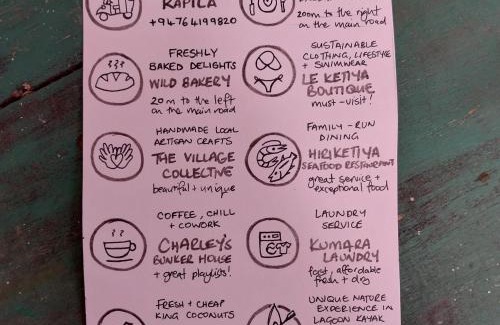 KAPILA
+94764199820
200m to the right
on the main road
FRESHLY
BAKED DELIGHTS
WILD BAKERY
20m to the left
on the main road
SUSTAINABLE
CLOTHING, LIFESTYLE
+ SWIMWEAR
LE KETIYA
BOUTIQUE
must-visit!
HANDMADE LOCAL
ARTISAN CRAFTS
THE VILLAGE
COLLECTIVE
beautiful + unique
FAMILY-RUN
DINING
HIRIKETIYA
SEAFOOD RESTAURANT
great service +
exceptional food
COFFEE, CHILL
+ COWORK
CHARLEY'S
BUNKER HOUSE
+ great playlists!
LAUNDRY
SERVICE
KUMARA
LAUNDRY
fast, affordable
fresh + dry
FRESH + CHEAP
KING COCONUTS
UNIQUE NATURE
EXPERIENCE IN
LAGOON KAYAK